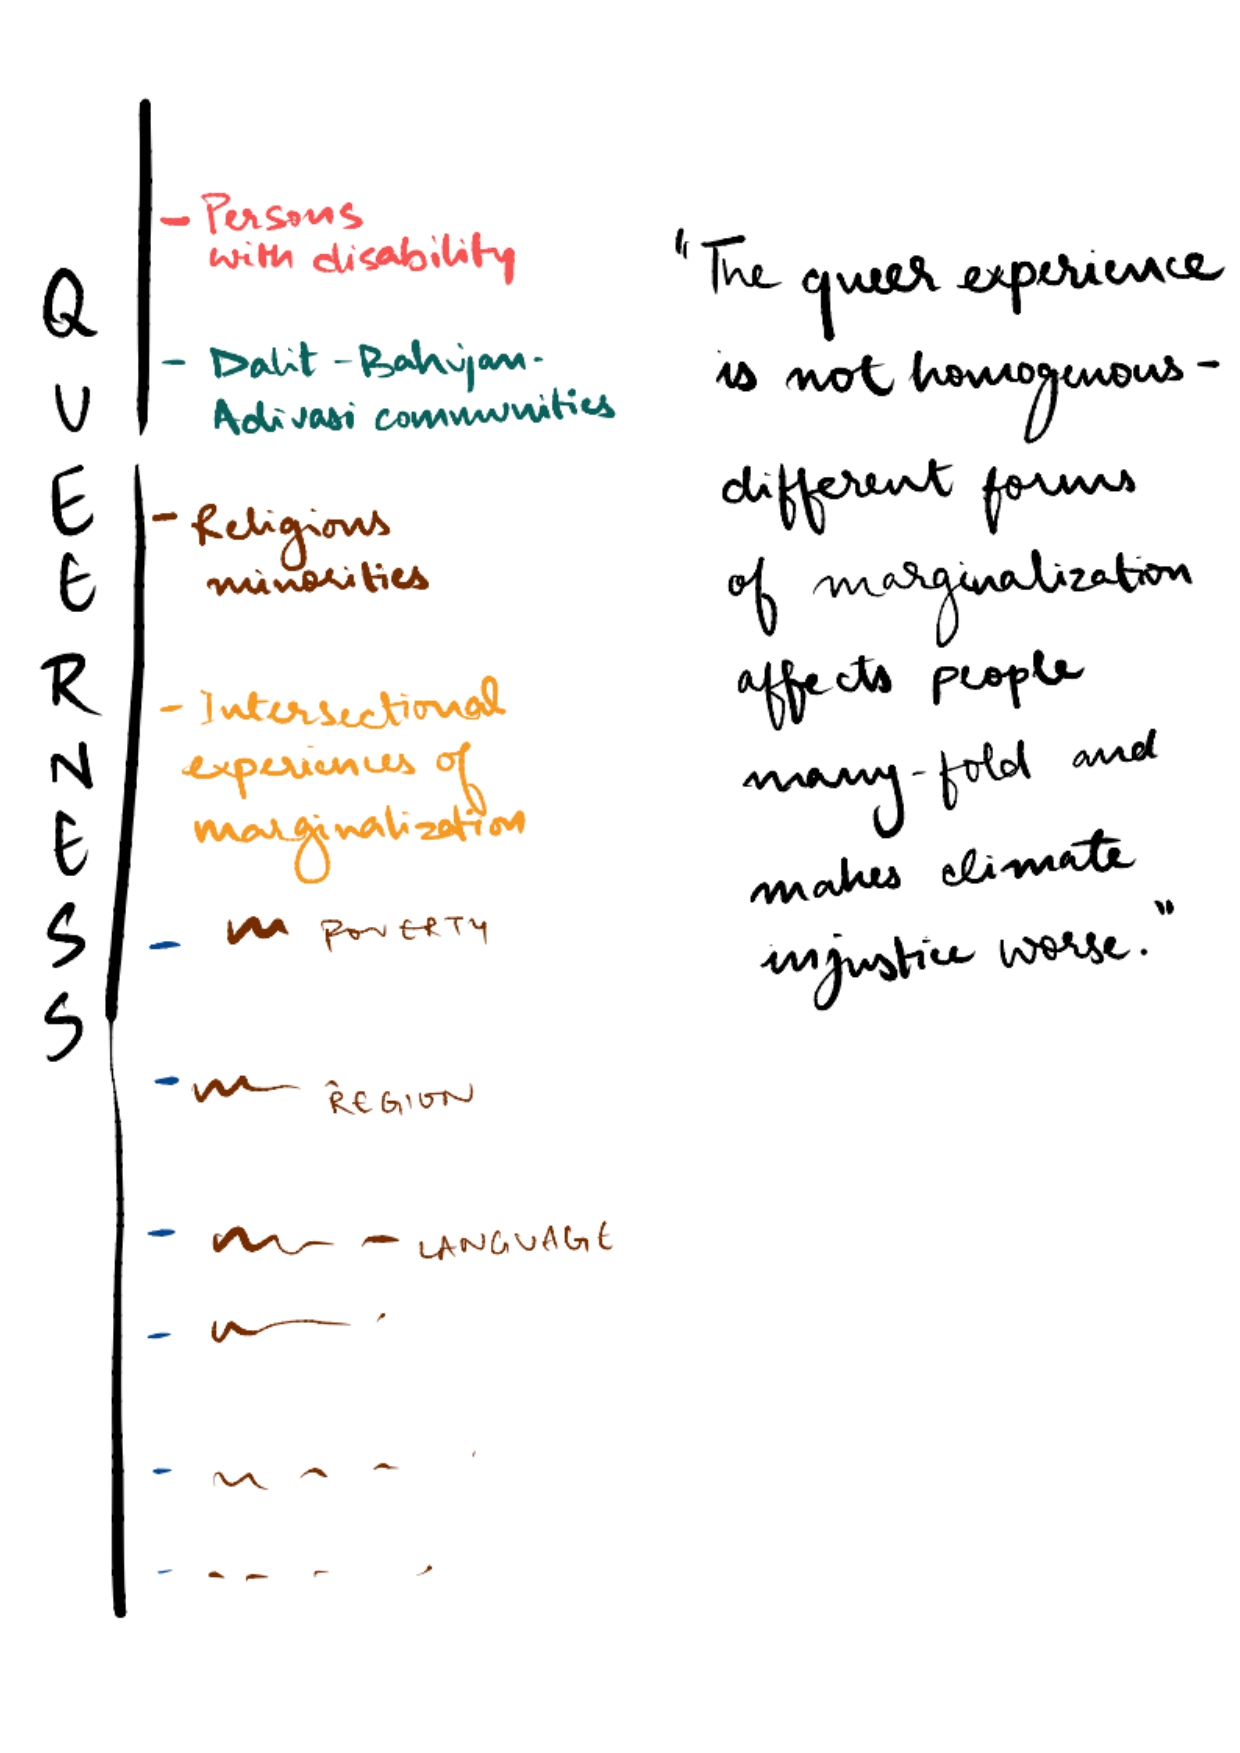 QUEERNESS
- Persons
with disability
- Dalit - Bahujan -
Adivasi communities
- Religious
minorities
- Intersectional
experiences of
marginalization
- POVERTY
- REGION
- - LANGUAGE
"The queer experience
is not homogenous -
different forms
of marginalization
affects people
many-fold and
makes climate
injustice worse."